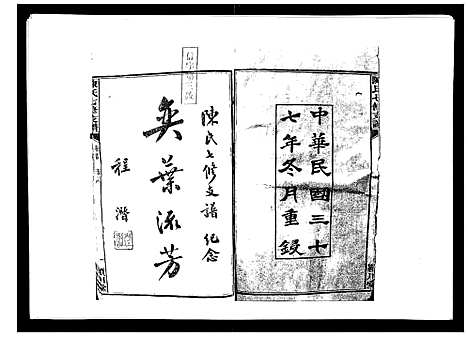 中華民國三十
七年冬月重鋟
陳氏七修支譜 紀念
奕葉流芳
程潛